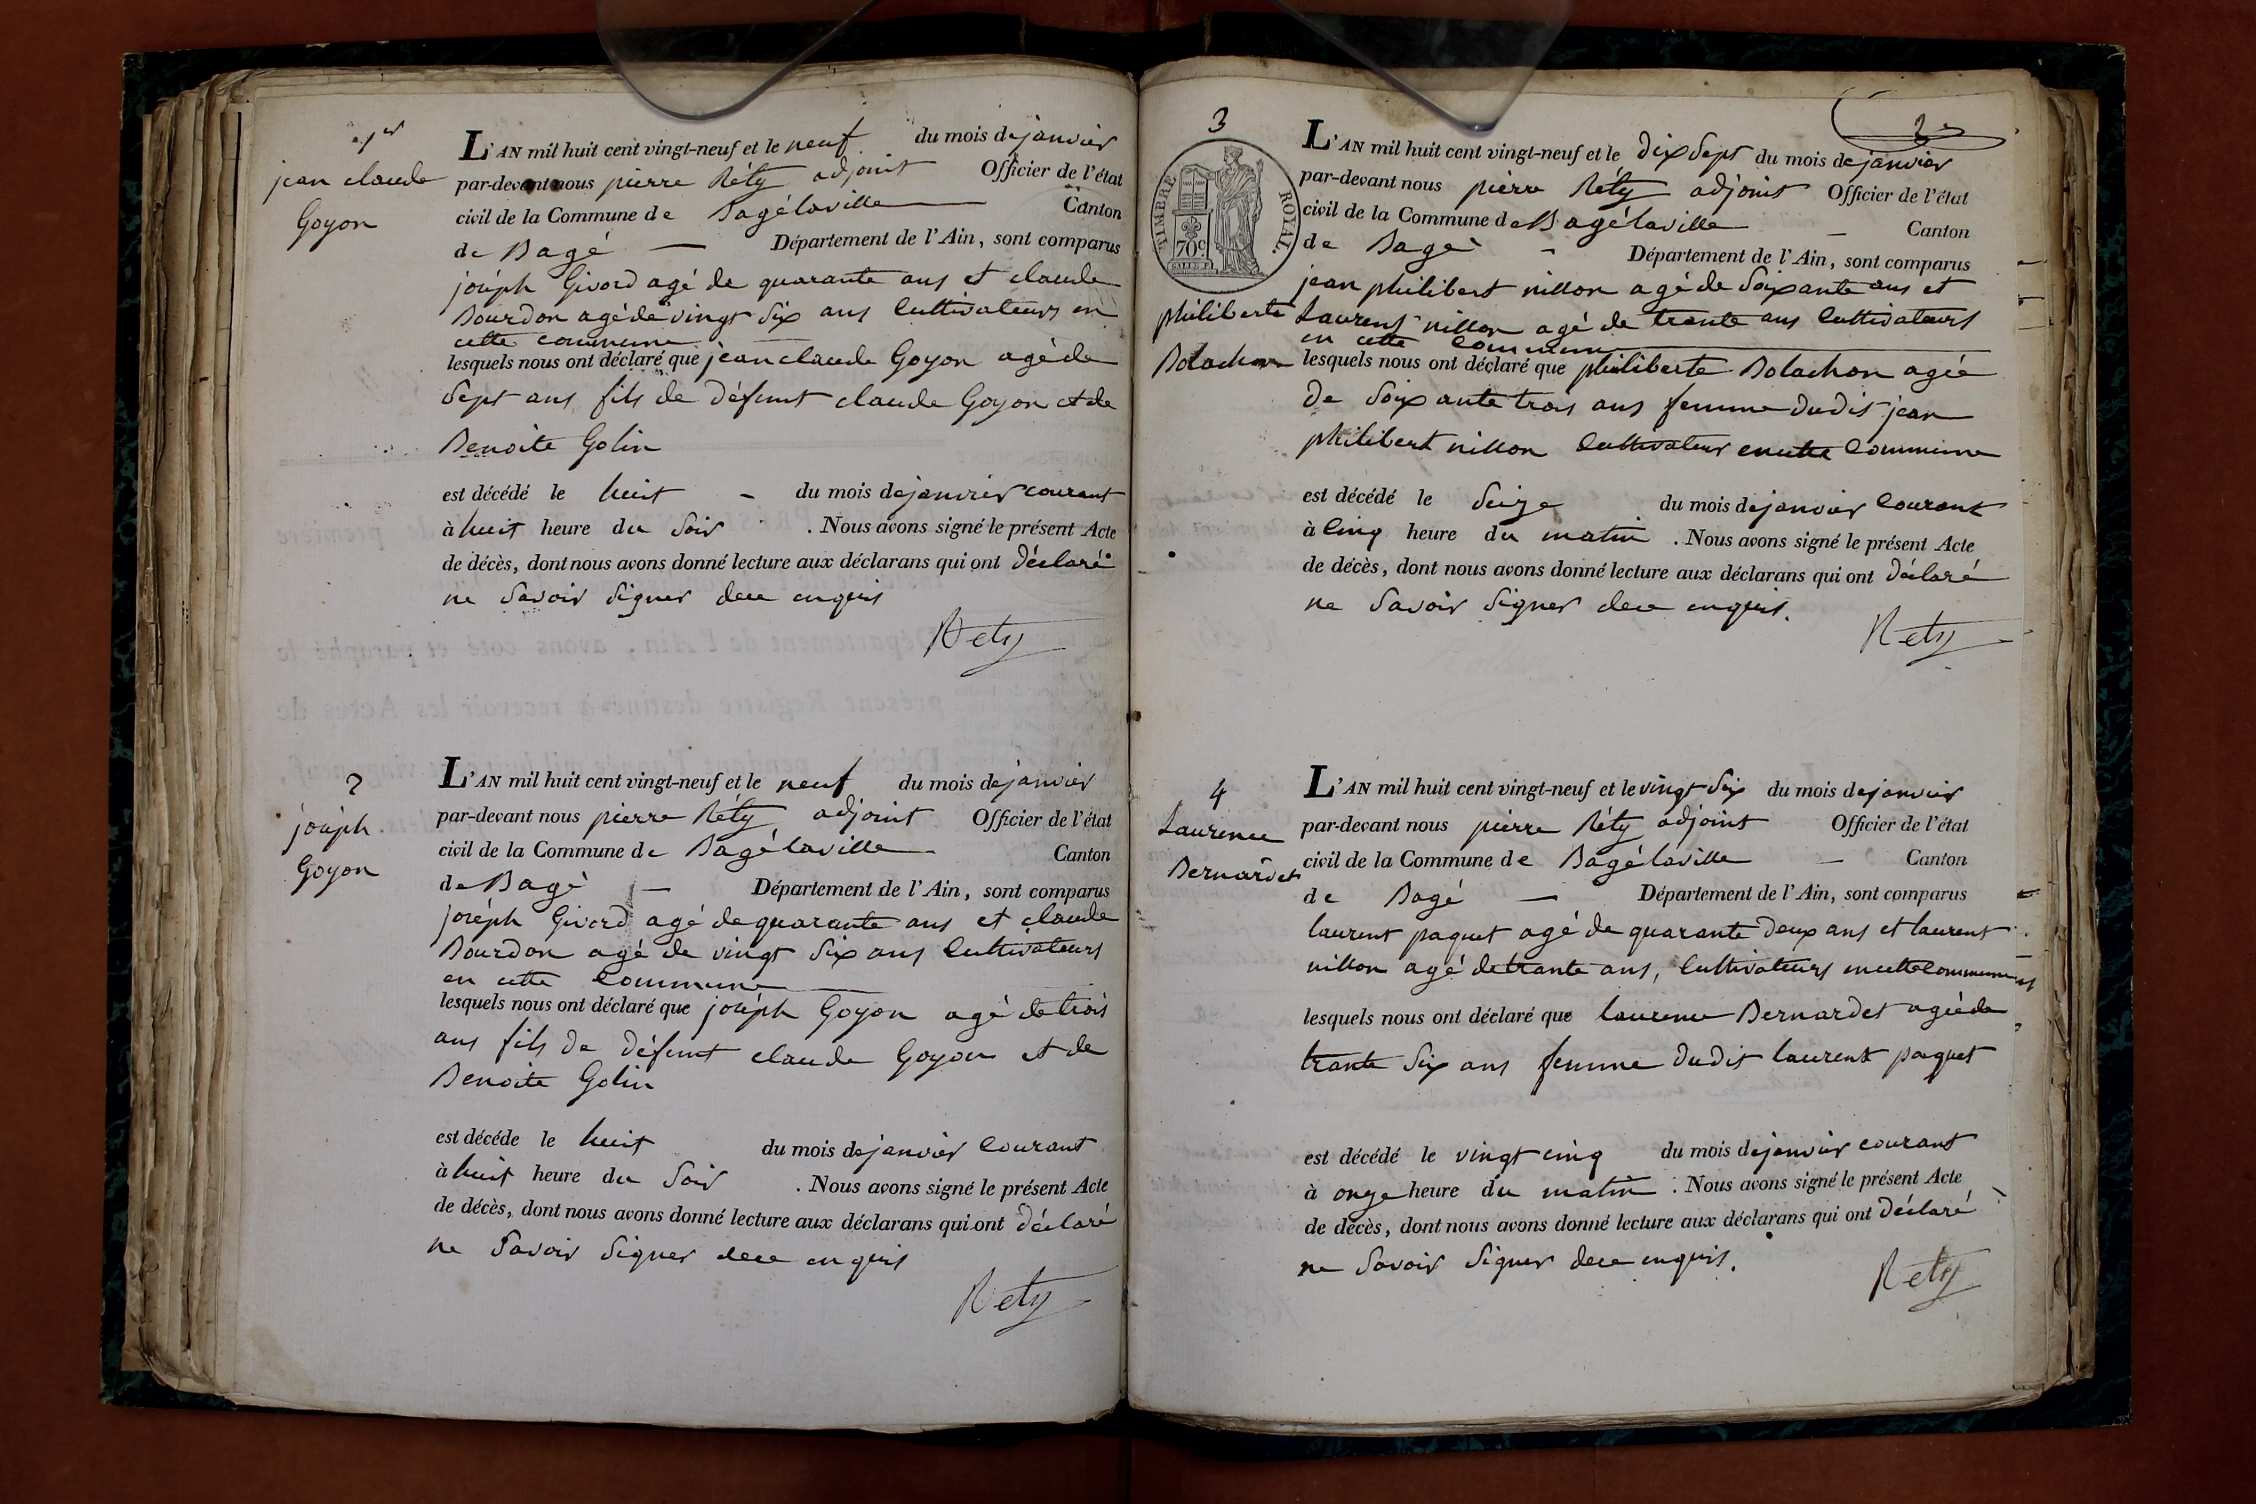 1er
jean claude
Goyon
L'AN mil huit cent vingt-neuf et le neuf du mois de janvier
par-devant nous pierre Réty adjoint Officier de l'état
civil de la Commune de Bagélaville Canton
de Bagé — Département de l'Ain, sont comparus
joséph Givord agé de quarante ans et claude
Bourdon agé de vingt six ans Cultivateurs en
cette commune
lesquels nous ont déclaré que jean claude Goyon agé de
Sept ans fils de défunt claude Goyon et de
Benoite Golin
est décédé le huit - du mois de janvier courant
à huit heure du Soir . Nous avons signé le présent Acte
de décès, dont nous avons donné lecture aux déclarans qui ont déclaré
ne Savoir Signer de ce enquis
Rety
2
joséph
Goyon
L'AN mil huit cent vingt-neuf et le neuf du mois de janvier
par-devant nous pierre Réty adjoint Officier de l'état
civil de la Commune de Bagélaville Canton
de Bagé — Département de l'Ain, sont comparus
joséph Givord agé de quarante ans et claude
Bourdon agé de vingt Six ans Cultivateurs
en cette Commune
lesquels nous ont déclaré que joséph Goyon agé de trois
ans fils de défunt claude Goyon et de
Benoite Golin
est décédé le huit du mois de janvier Courant
à huit heure du Soir . Nous avons signé le présent Acte
de décès, dont nous avons donné lecture aux déclarans qui ont déclaré
ne Savoir Signer de ce enquis
Rety
3
TIMBRE ROYAL
70c
philiberte
Bolachon
L'AN mil huit cent vingt-neuf et le dix Sept du mois de janvier
par-devant nous pierre Réty adjoint Officier de l'état
civil de la Commune de Bagélaville — Canton
de Bagé - Département de l'Ain, sont comparus
jean philibert nillon agé de Soixante ans et
Laurent nillon agé de trente ans Cultivateurs
en cette Commune
lesquels nous ont déclaré que philiberte Bolachon agée
de Soixante trois ans femme dudit jean
philibert nillon Cultivateur en cette Commune
est décédé le Seize du mois de janvier Courant
à Cinq heure du matin . Nous avons signé le présent Acte
de décès, dont nous avons donné lecture aux déclarans qui ont déclaré
ne Savoir Signer de ce enquis.
Rety
4
Laurence
Bernardet
L'AN mil huit cent vingt-neuf et le vingt Six du mois de janvier
par-devant nous pierre Réty adjoint Officier de l'état
civil de la Commune de Bagélaville — Canton
de Bagé — Département de l'Ain, sont comparus
laurent paquet agé de quarante deux ans et laurent
nillon agé de trante ans, Cultivateurs en cette Commune
lesquels nous ont déclaré que laurence Bernardet agée de
trante Six ans femme dudit laurent paquet
est décédé le vingt cinq du mois de janvier courant
à onze heure du matin . Nous avons signé le présent Acte
de décès, dont nous avons donné lecture aux déclarans qui ont déclaré
ne Savoir Signer de ce enquis.
Rety